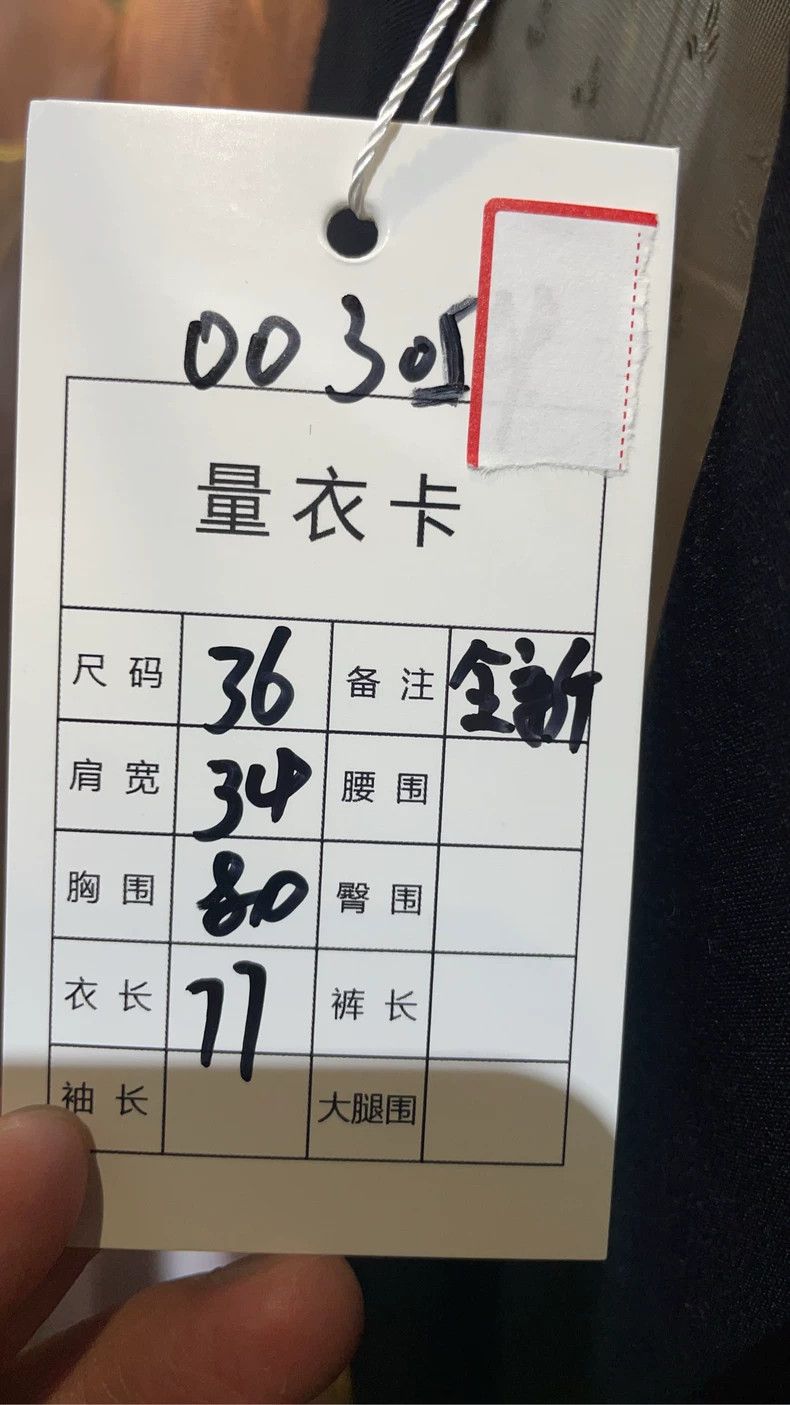 00305
量衣卡
尺码 36 备注 全新
肩宽 34 腰围
胸围 80 臀围
衣长 77 裤长
袖长 大腿围